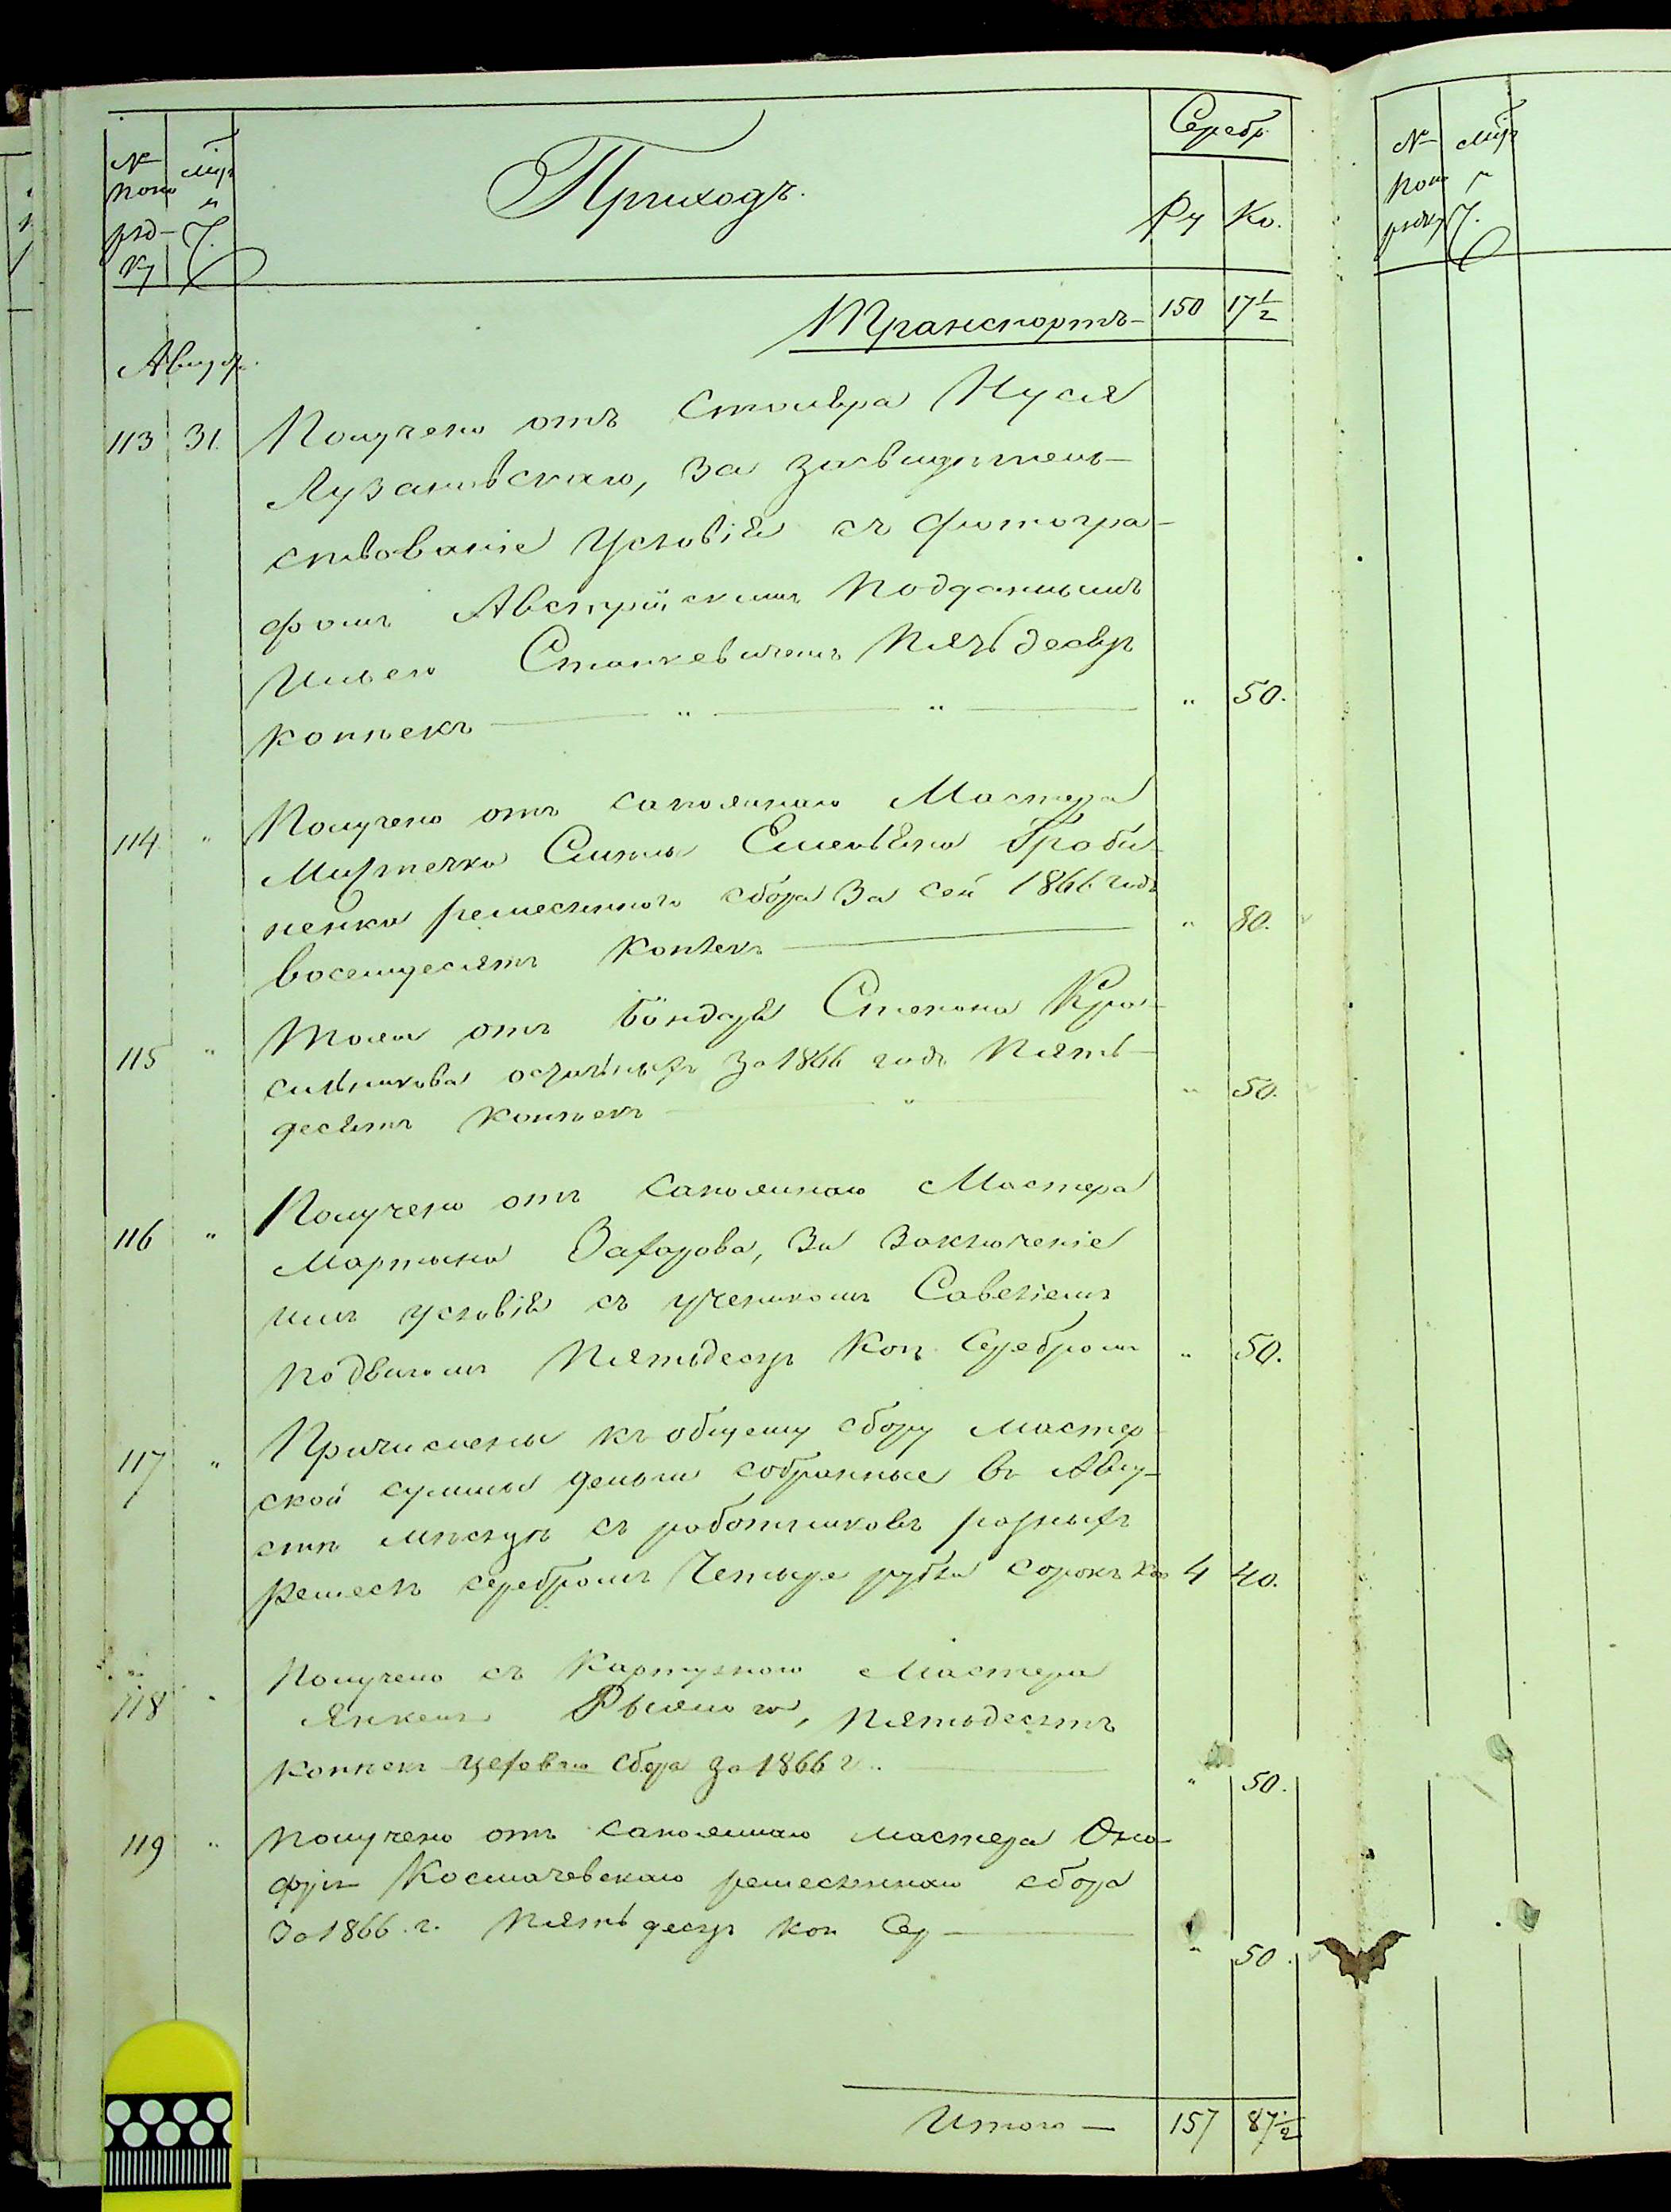 № Мцъ Приходъ. Серебр.
по по и
ряд- Ч. Ру Ко.
ку
Транспортъ- 150 17½
Август.
113 31. Получено отъ Столяра Нуся
Лузановскаго, за засвидѣтель-
ствованіе Условія съ фотогра-
фомъ Австрійскимъ Подданнымъ
Ильею Станкевичемъ Пятьдесят
копѣекъ " " " 50.
114 " Получено отъ сапожнаго Мастера
Емельяна
ненка ремесленнаго сбора За сей 1866 годъ
восемдесятъ Копѣекъ " 80.
115 " Тоже отъ Бондаря Степана Кра-
сильникова за 1866 годъ Пять-
десятъ Копѣекъ " " 50.
116 " Получено отъ сапожнаго Мастера
Мартына Захарова, За Заключеніе
имъ условія съ ученикомъ Савеліемъ
Пятьдесят Коп. Серебромъ " 50.
117 " Причислены къ общему сбору мастер-
ской суммы деньги собранные въ Авгу-
стѣ мѣсяцѣ съ работниковъ разныхъ
Ремеслъ серебромъ Четыре рубля сорокъ ко 4 40.
118 " Получено съ Картузнаго Мастера
Янкеля , Пятьдесятъ
копѣекъ цеховаго Сбора за 1866 г. " 50.
119 " Получено отъ сапожнаго мастера Оно-
фрія Космачевскаго ремесленнаго сбора
За 1866. г. Пятьдесят Коп Сер " 50.
Итого — 157 87½
№ Мцъ
по и
рядку Ч.